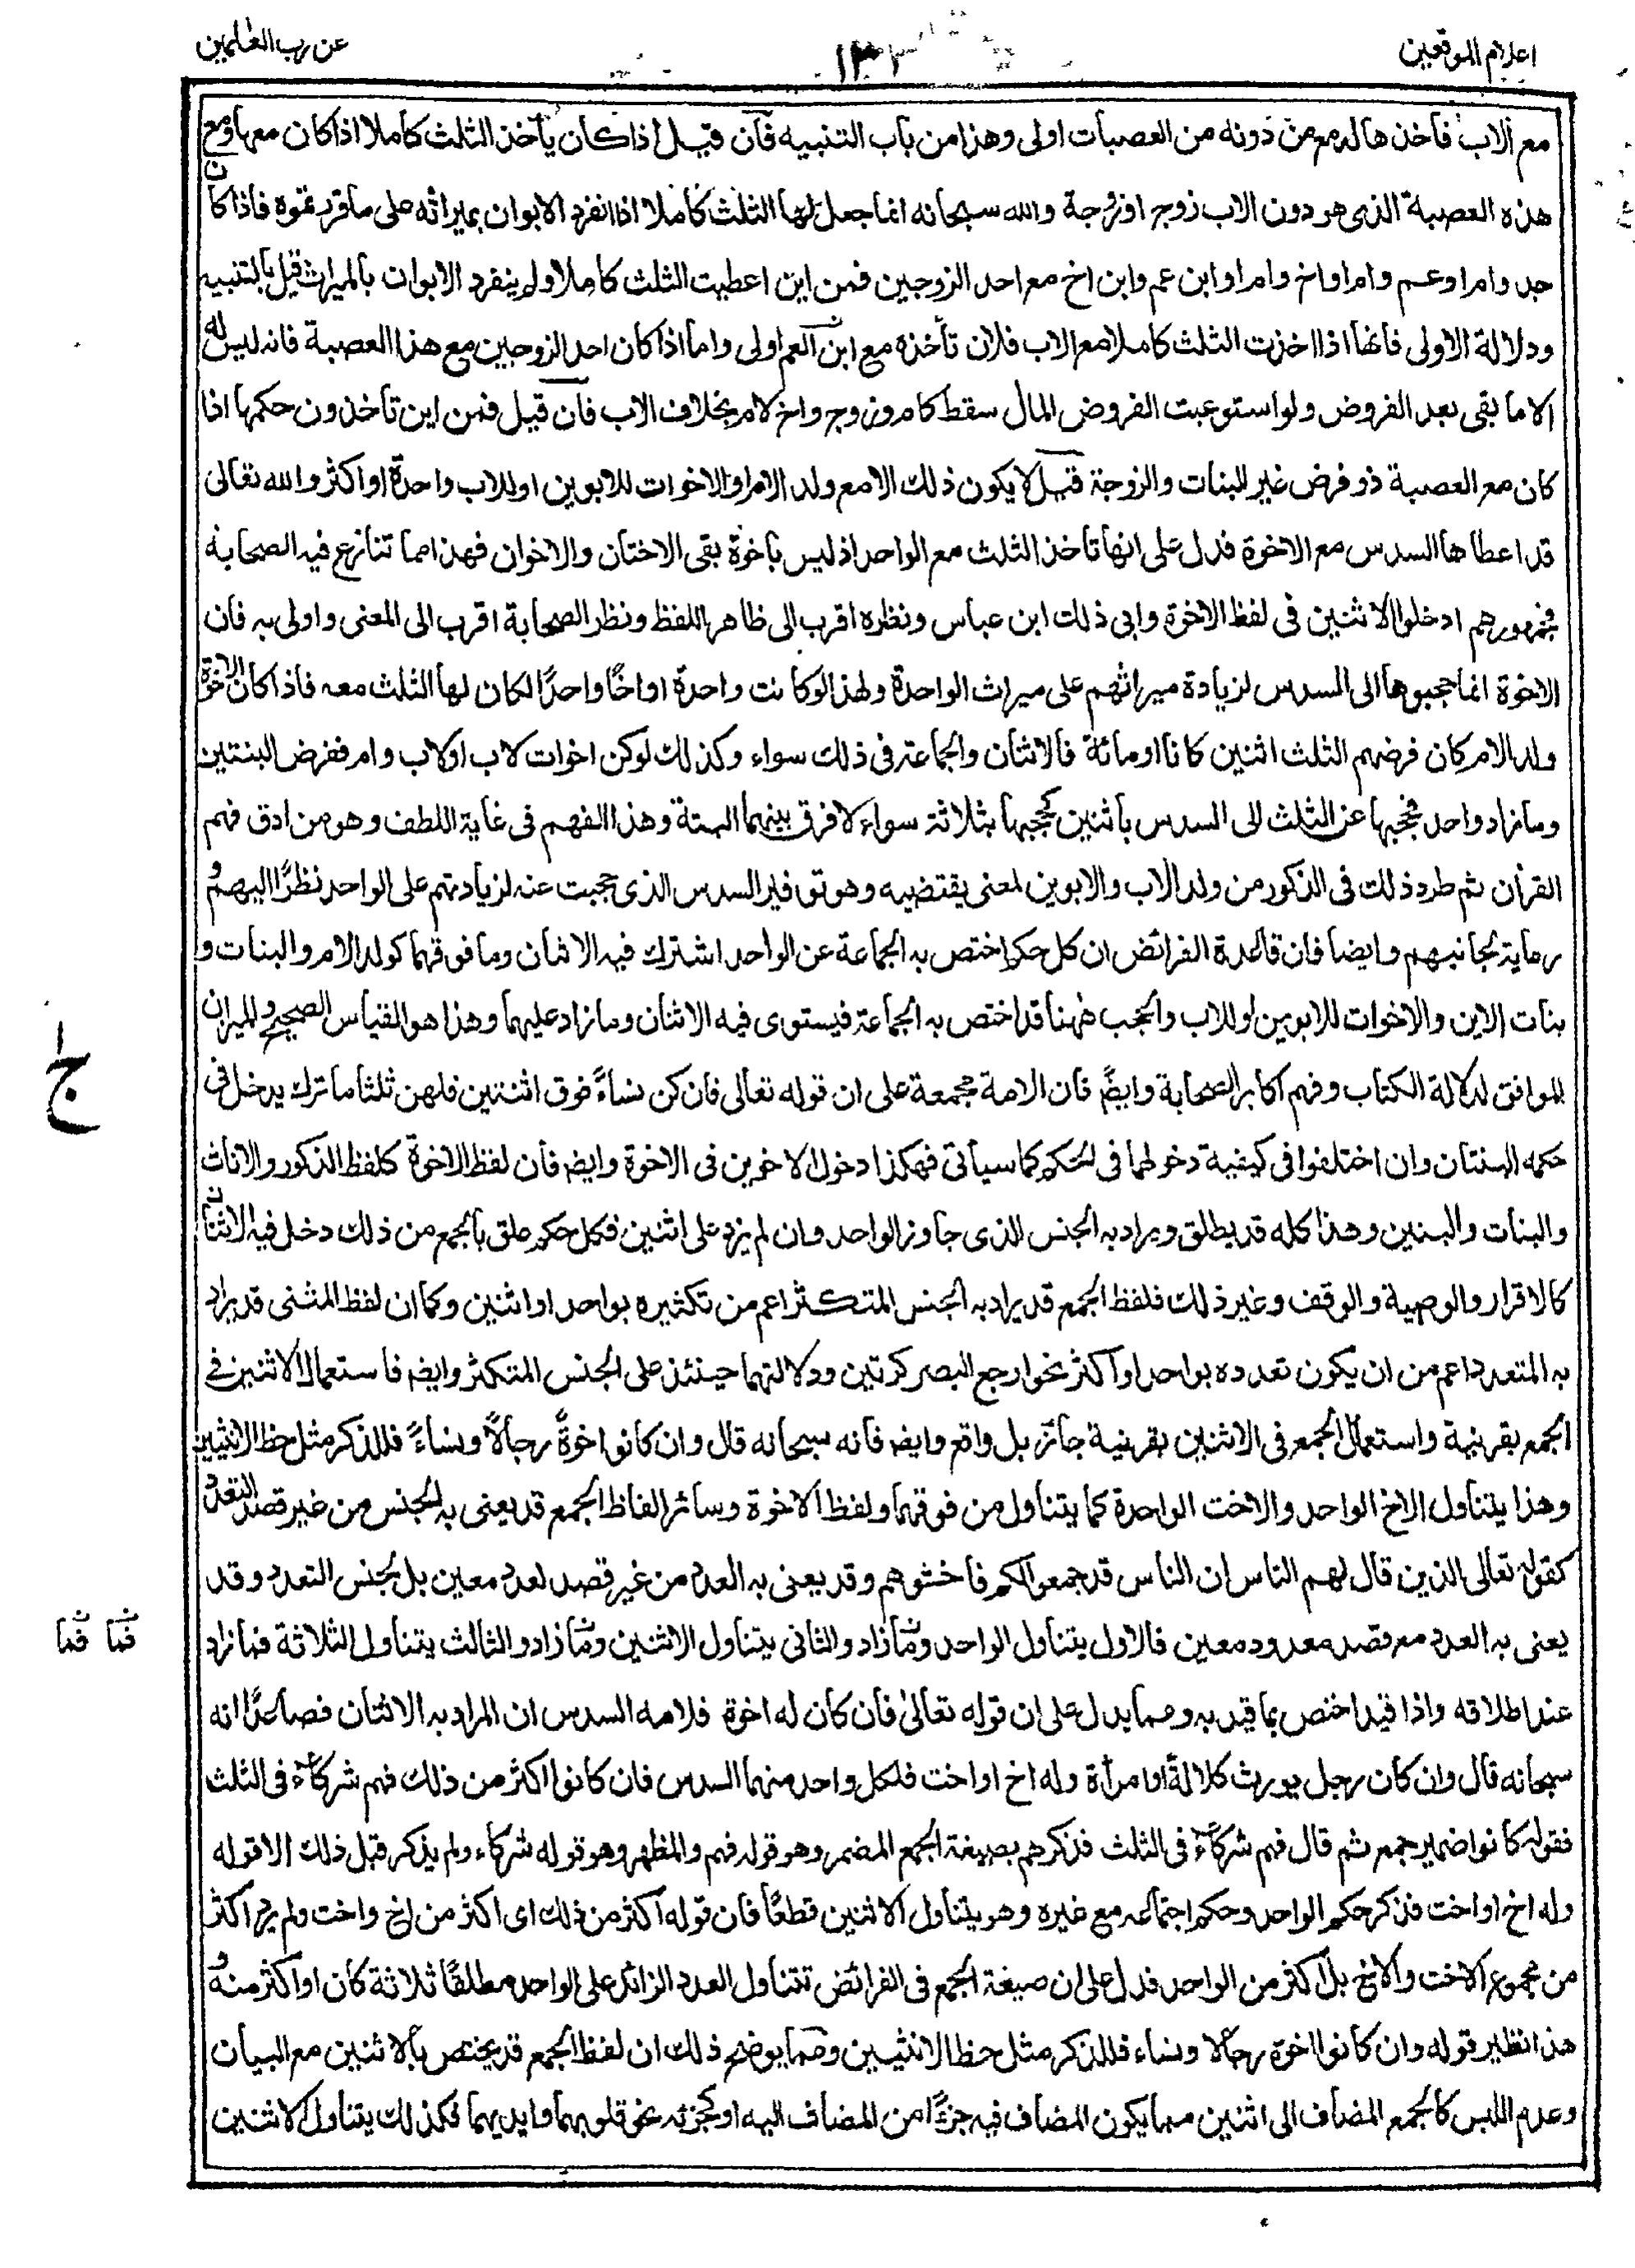 اعلام الموقعين
١٣٢
عن رب العلمين
مع الاب فأخذها له مع من دونه من العصبات اولى وهذا من باب التنبيه فان قيل اذا كان يأخذ الثلث كاملا اذا كان معها ومع
هذه العصبة الذى هو دون الاب زوج او زوجة والله سبحانه انما جعل لها الثلث كاملا اذا انفرد الابوان بميراثه على ما قررتموه فاذا كان
جد وام او عم وام او اخ وام او ابن عم وابن اخ مع احد الزوجين فمن اين اعطيت الثلث كاملا ولم ينفرد الابوان بالميراث قيل بالتنبيه
ودلالة الاولى فانها اذا اخذت الثلث كاملا مع الاب فلان تأخذه مع ابن العم اولى واما اذا كان احد الزوجين مع هذا العصبة فانه ليس له
الا ما بقى بعد الفروض ولو استوعبت الفروض المال سقط كام وزوج واخ لام بخلاف الاب فان قيل فمن اين تأخذون حكمها اذا
كان مع العصبة ذو فرض غير البنات والزوجة قيل لا يكون ذلك الا مع ولد الام او الاخوات للابوين او للاب واحدة او اكثر والله تعالى
قد اعطاها السدس مع الاخوة فدل على انها تاخذ الثلث مع الواحد اذ ليس باخوة بقى الاختان والاخوان فهذا مما تنازع فيه الصحابة
فجمهورهم ادخلوا الاثنين فى لفظ الاخوة وابى ذلك ابن عباس ونظره اقرب الى ظاهر اللفظ ونظر الصحابة اقرب الى المعنى واولى به فان
الاخوة انما حجبوها الى السدس لزيادة ميراثهم على ميراث الواحدة ولهذا لو كانت واحدة او اخًا واحدًا لكان لها الثلث معه فاذا كان الاخوة
ولد الام كان فرضهم الثلث اثنين كانا او مائة فالاثنان والجماعة فى ذلك سواء وكذلك لو كن اخوات لاب او لاب وام ففرض البنتين
وما زاد واحد فحجبها عن الثلث الى السدس باثنين كحجبها بثلاثة سواء لا فرق بينهما البتة وهذا الفهم فى غاية اللطف وهو من ادق فهم
القرأن ثم طرد ذلك فى الذكور من ولد الاب والابوين لمعنى يقتضيه وهو توفير السدس الذى حجبت عنه لزيادتهم على الواحد نظرًا اليهم و
رعاية لجانبهم وايضا فان قاعدة الفرائض ان كل حكم اختص به الجماعة عن الواحد اشترك فيه الاثنان وما فوقهما كولد الام والبنات و
بنات الابن والاخوات للابوين او للاب والحجب ههنا قد اختص به الجماعة فيستوى فيه الاثنان وما زاد عليهما وهذا هو القياس الصحيح والميزان
الموافق لدلالة الكتاب وفهم اكابر الصحابة وايضً فان الامة مجمعة على ان قوله تعالى فان كن نساءً فوق اثنتين فلهن ثلثا ما ترك يدخل فى
حكمه البنتان وان اختلفوا فى كيفية دخولهما فى الحكم كما سيأتى فهكذا دخول الاخوين فى الاخوة وايضً فان لفظ الاخوة كلفظ الذكور والاناث
والبنات والبنين وهذا كله قد يطلق ويراد به الجنس الذى جاوز الواحد وان لم يزد على اثنين فكل حكم علق بالجمع من ذلك دخل فيه الاثنان
كالاقرار والوصية والوقف وغير ذلك فلفظ الجمع قد يراد به الجنس المتكثر اعم من تكثيره بواحد او اثنين وكما ان لفظ المثنى قد يراد
به المتعدد اعم من ان يكون تعدده بواحد او اكثر نحو ارجع البصر كرتين ودلالتهما حينئذ على الجنس المتكثر وايضً فاستعمال الاثنين فى
الجمع بقرينة واستعمال الجمع فى الاثنين بقرينة جائز بل واقع وايضً فانه سبحانه قال وان كانوا اخوةً رجالًا ونساءً فللذكر مثل حظ الانثيين
وهذا يتناول الاخ الواحد والاخت الواحدة كما يتناول من فوقهما ولفظ الاخوة وسائر الفاظ الجمع قد يعنى به الجنس من غير قصد التعدد
كقوله تعالى الذين قال لهم الناس ان الناس قد جمعوا لكم فاخشوهم وقد يعنى به العدد من غير قصد لعدد معين بل لجنس التعدد وقد
يعنى به العدد مع قصد معدود معين فالاول يتناول الواحد وما زاد والثانى يتناول الاثنين وما زاد والثالث يتناول الثلاثة فما زاد
فما فما
عند اطلاقه واذا قيد اختص بما قيد به ومما يدل على ان قوله تعالىٰ فان كان له اخوة فلامه السدس ان المراد به الاثنان فصاعدًا انه
سبحانه قال وان كان رجل يورث كلالةً او امرأة وله اخ او اخت فلكل واحد منهما السدس فان كانوا اكثر من ذلك فهم شركاء فى الثلث
فقوله كانوا ضمير جمع ثم قال فهم شركاء فى الثلث فذكرهم بصيغة الجمع المضمر وهو قوله فهم والمظهر وهو قوله شركاء ولم يذكر قبل ذلك الا قوله
وله اخ او اخت فذكر حكم الواحد وحكم اجتماعه مع غيره وهو يتناول الاثنين قطعًا فان قوله اكثر من ذلك اى اكثر من اخ واخت ولم يرد اكثر
من مجموع الاخت والاخ بل اكثر من الواحد فدل على ان صيغة الجمع فى الفرائض تتناول العدد الزائد على الواحد مطلقًا ثلاثة كان او اكثر منه و
هذا نظير قوله وان كانوا اخوة رجالا ونساء فللذكر مثل حظ الانثيين ومما يوضح ذلك ان لفظ الجمع قد يختص بالاثنين مع البيان
وعدم اللبس كالجمع المضاف الى اثنين مما يكون المضاف فيه جزءًا من المضاف اليه او كجزئه نحو قلوبهما وايديهما فكذلك يتناول الاثنين